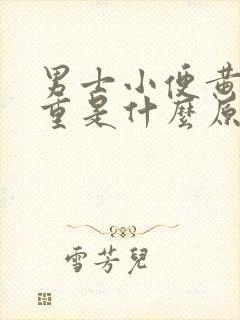 男士小便黃
重是什麼原
雪芳兒